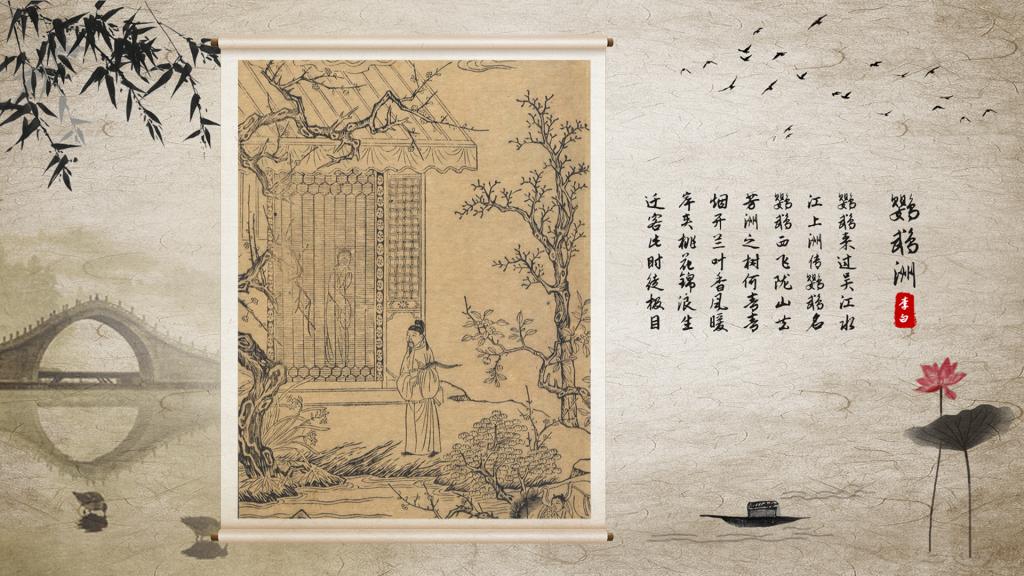 鹦鹉洲
李白
鹦鹉来过吴江水
江上洲传鹦鹉名
鹦鹉西飞陇山去
芳洲之树何青青
烟开兰叶香风暖
岸夹桃花锦浪生
迁客此时徒极目